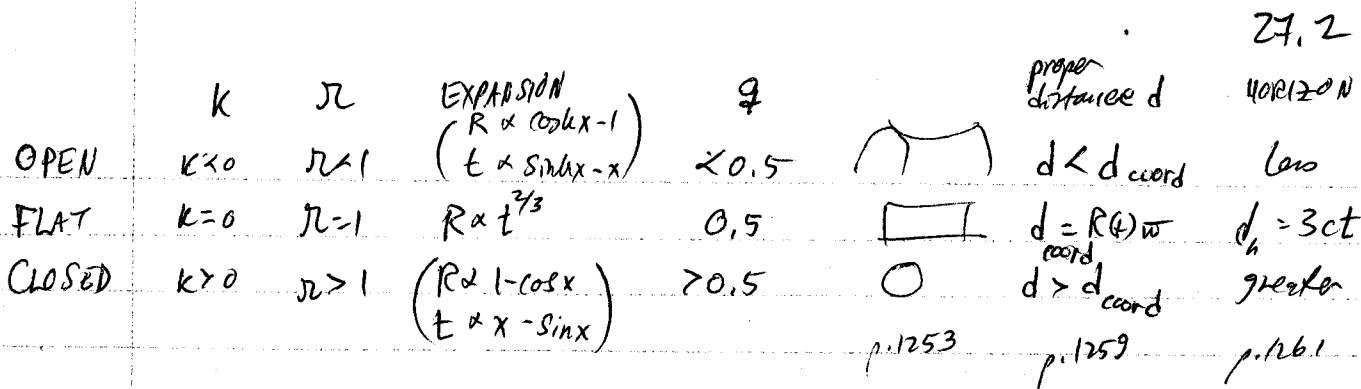 27.2
K Ω EXPANSION q proper distance d HORIZON
OPEN K<0 Ω<1 (R ∝ coshx-1 t ∝ sinhx-x) <0.5 d < d coord less
FLAT K=0 Ω=1 R ∝ t^2/3 0.5 d coord = R(t)ϖ d_h = 3ct
CLOSED K>0 Ω>1 (R ∝ 1-cosx t ∝ x-sinx) >0.5 d > d coord greater
p.1253 p.1259 p.1261